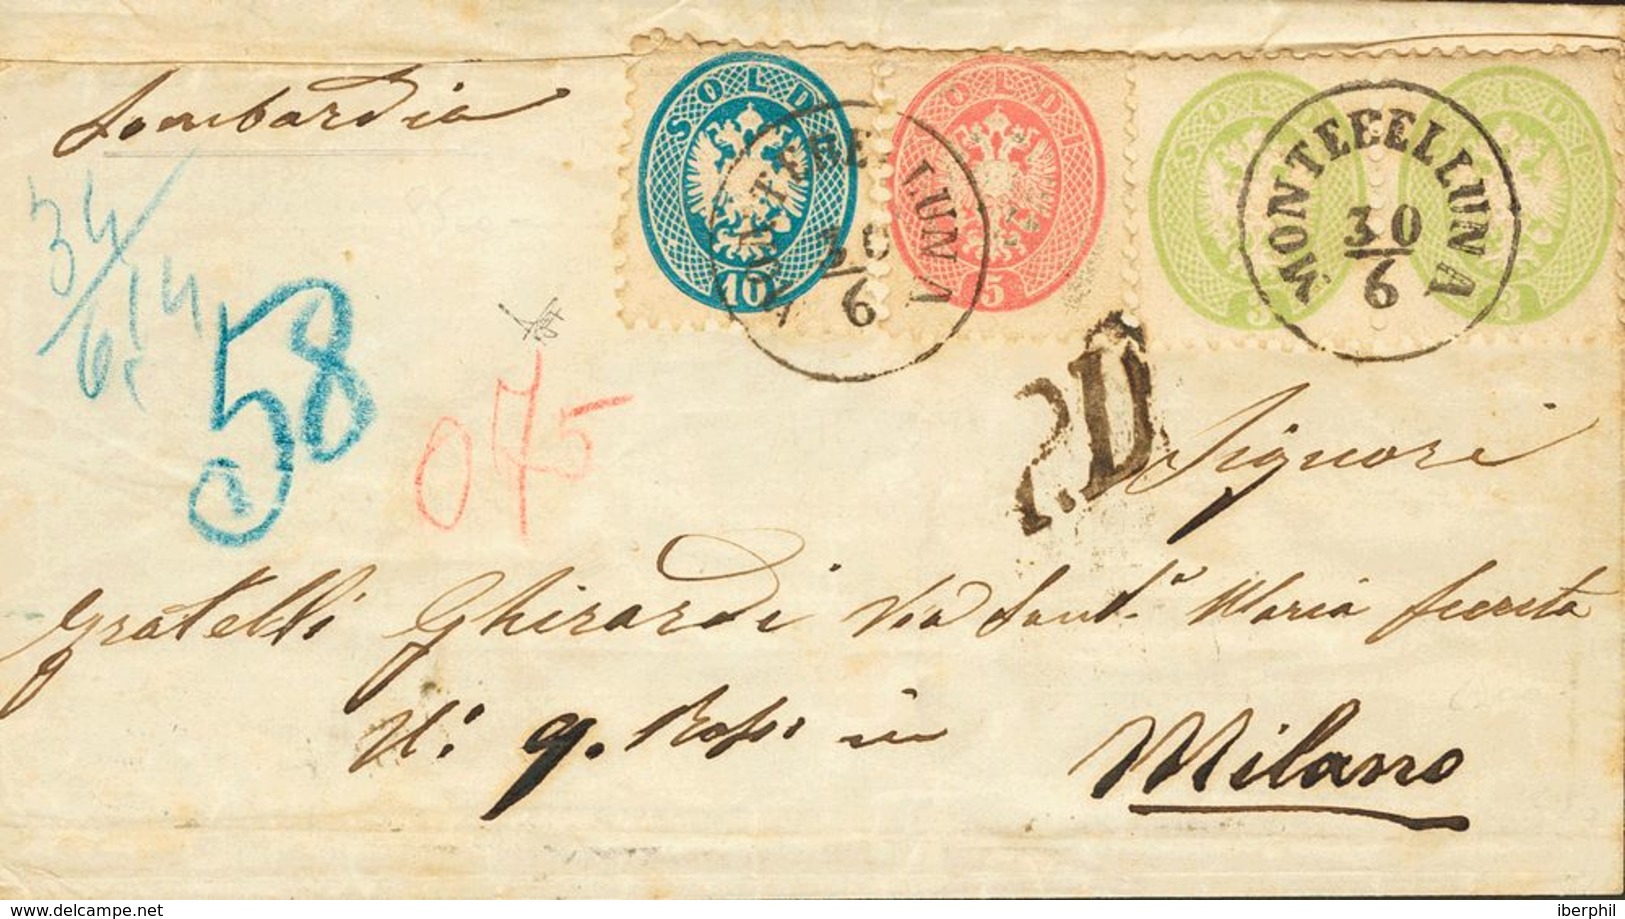 Lombardia
SOLDI 10
SOLDI 5
SOLDI 3
SOLDI 3
MONTEBELLUNA 30/6
MONTEBELLUNA 30/6
34/6
14
58
075
P.D.
Signori
Fratelli Ghirardi Via Santa Maria Secreta
N: 9. Rosso in
Milano
www.delcampe.net
iberphil